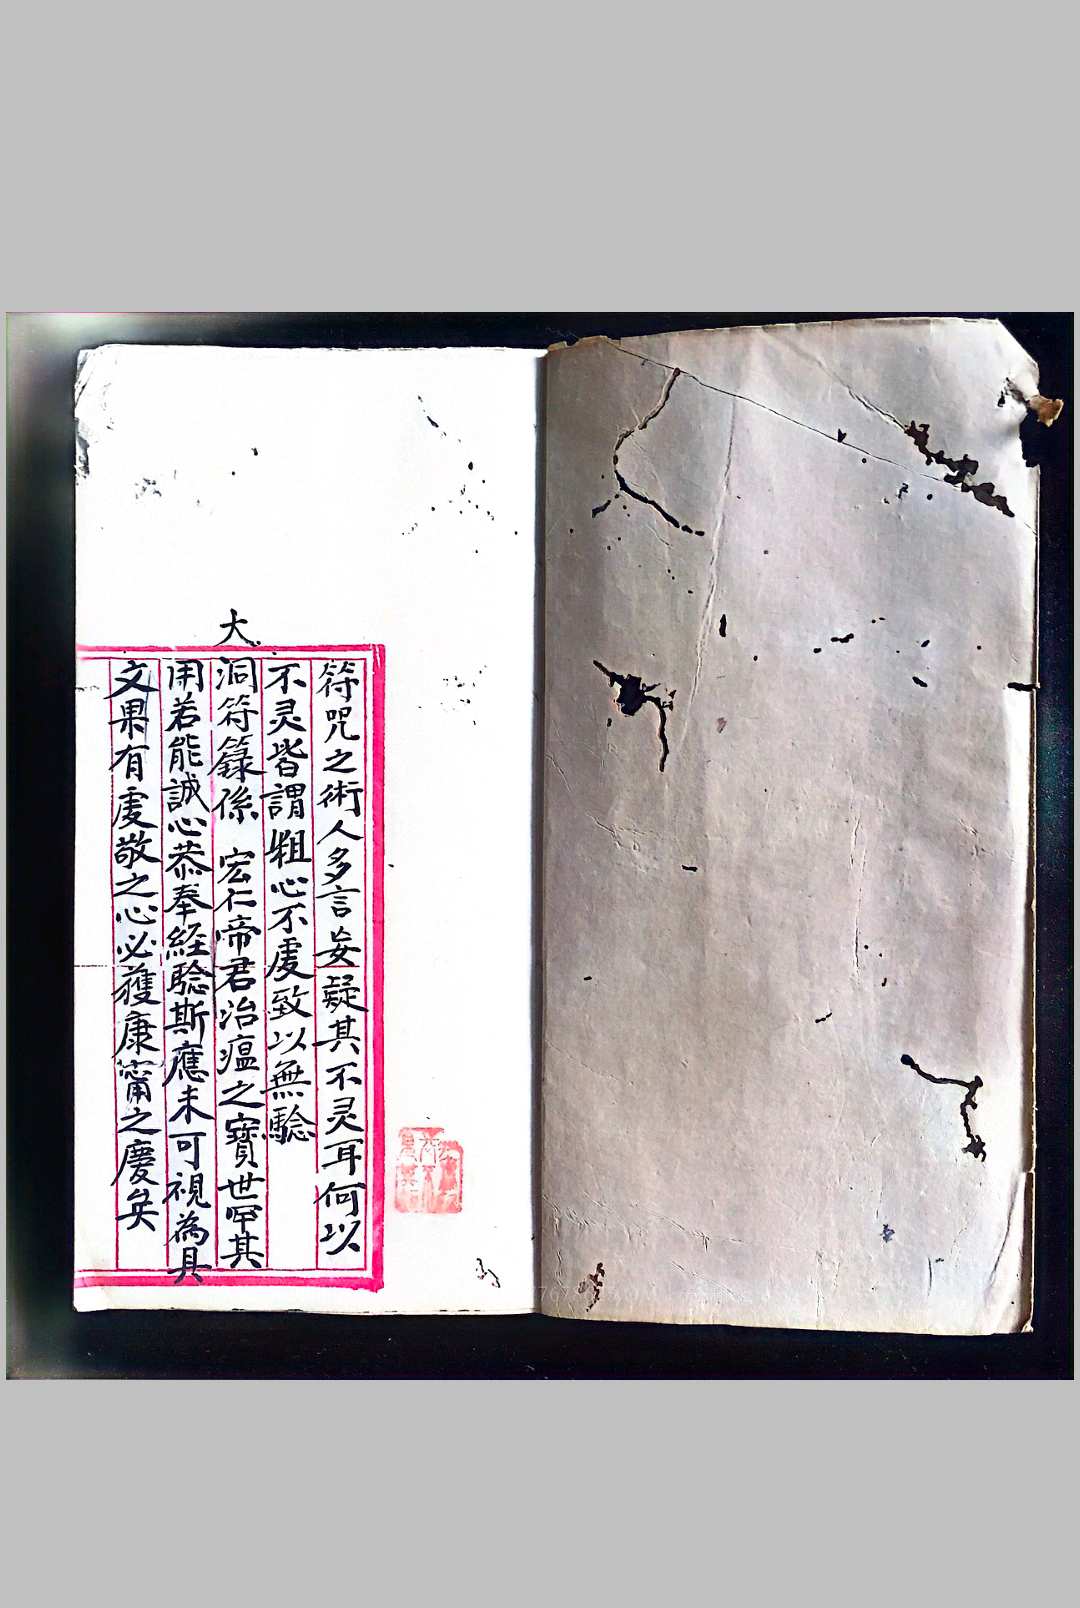 符咒之術人多言妄疑其不灵耳何以
不灵皆謂粗心不虔致以無驗
大洞符籙係 宏仁帝君治瘟之寳世罕其
用若能誠心恭奉経驗斯應未可視為具
文果有虔敬之心必獲康甯之慶矣